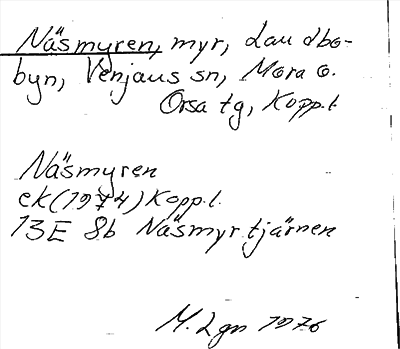 Näsmyren, myr, Landbo-
byn, Venjans sn, Mora o.
Orsa tg, Kopp.l
Näsmyren
ek(1974) Kopp.l.
13E 8b Näsmyrtjärnen
M. Lgn 1976